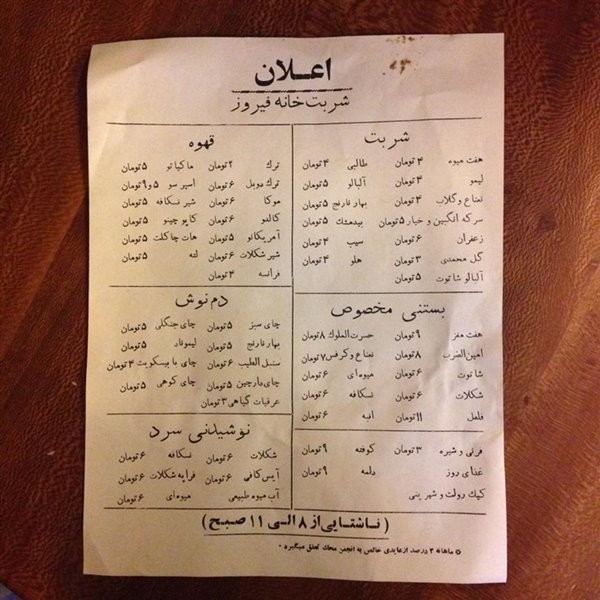 اعلان
شربت خانه فیروز
شربت
هفت میوه ۴ تومان طالبی ۴ تومان
لیمو ۴ تومان آلبالو ۵ تومان
نعناع و گلاب ۴ تومان بهار نارنج ۵ تومان
سرکه انگبین و خیار ۵ تومان بیدمشک ۵ تومان
زعفران ۶ تومان سیب ۴ تومان
گل محمدی ۳ تومان هلو ۴ تومان
آلبالو شاتوت ۵ تومان
قهوه
ترک ۲ تومان ماکیاتو ۵ تومان
ترک دوبل ۶ تومان اسپرسو ۵ و ۹ تومان
موکا ۶ تومان شیر نسکافه ۵ تومان
کالدو ۶ تومان کاپوچینو ۵ تومان
آمریکانو ۵ تومان هات چاکلت ۵ تومان
شیر شکلات ۶ تومان لته ۵ تومان
فرانسه ۴ تومان
بستنی مخصوص
هفت مغز ۹ تومان حسرت الملوک ۸ تومان
امین الضرب ۸ تومان نعناع و کرفس ۷ تومان
شاتوت ۶ تومان میوه ای ۶ تومان
شکلات ۶ تومان نسکافه ۶ تومان
فلفل ۱۱ تومان انبه ۶ تومان
دم نوش
چای سبز ۵ تومان چای جنگلی ۵ تومان
بهار نارنج ۵ تومان لیموفار ۵ تومان
سنبل الطیب ۶ تومان چای با بیسکویت ۴ تومان
چای دارچین ۵ تومان چای کوهی ۵ تومان
عرقیات گیاهی ۳ تومان
فرنی و شیره ۳ تومان کوفته ۹ تومان
غذای روز دلمه ۹ تومان
کیک رولت و شهرینی
نوشیدنی سرد
شکلات ۶ تومان نسکافه ۶ تومان
آیس کافی ۶ تومان فراپه شکلات ۶ تومان
آب میوه طبیعی میوه ای ۶ تومان
(ناشتایی از ۸ الی ۱۱ صبح)
ماهانه ۲ درصد از عایدی خالص به انجمن محک تعلق میگیرد.